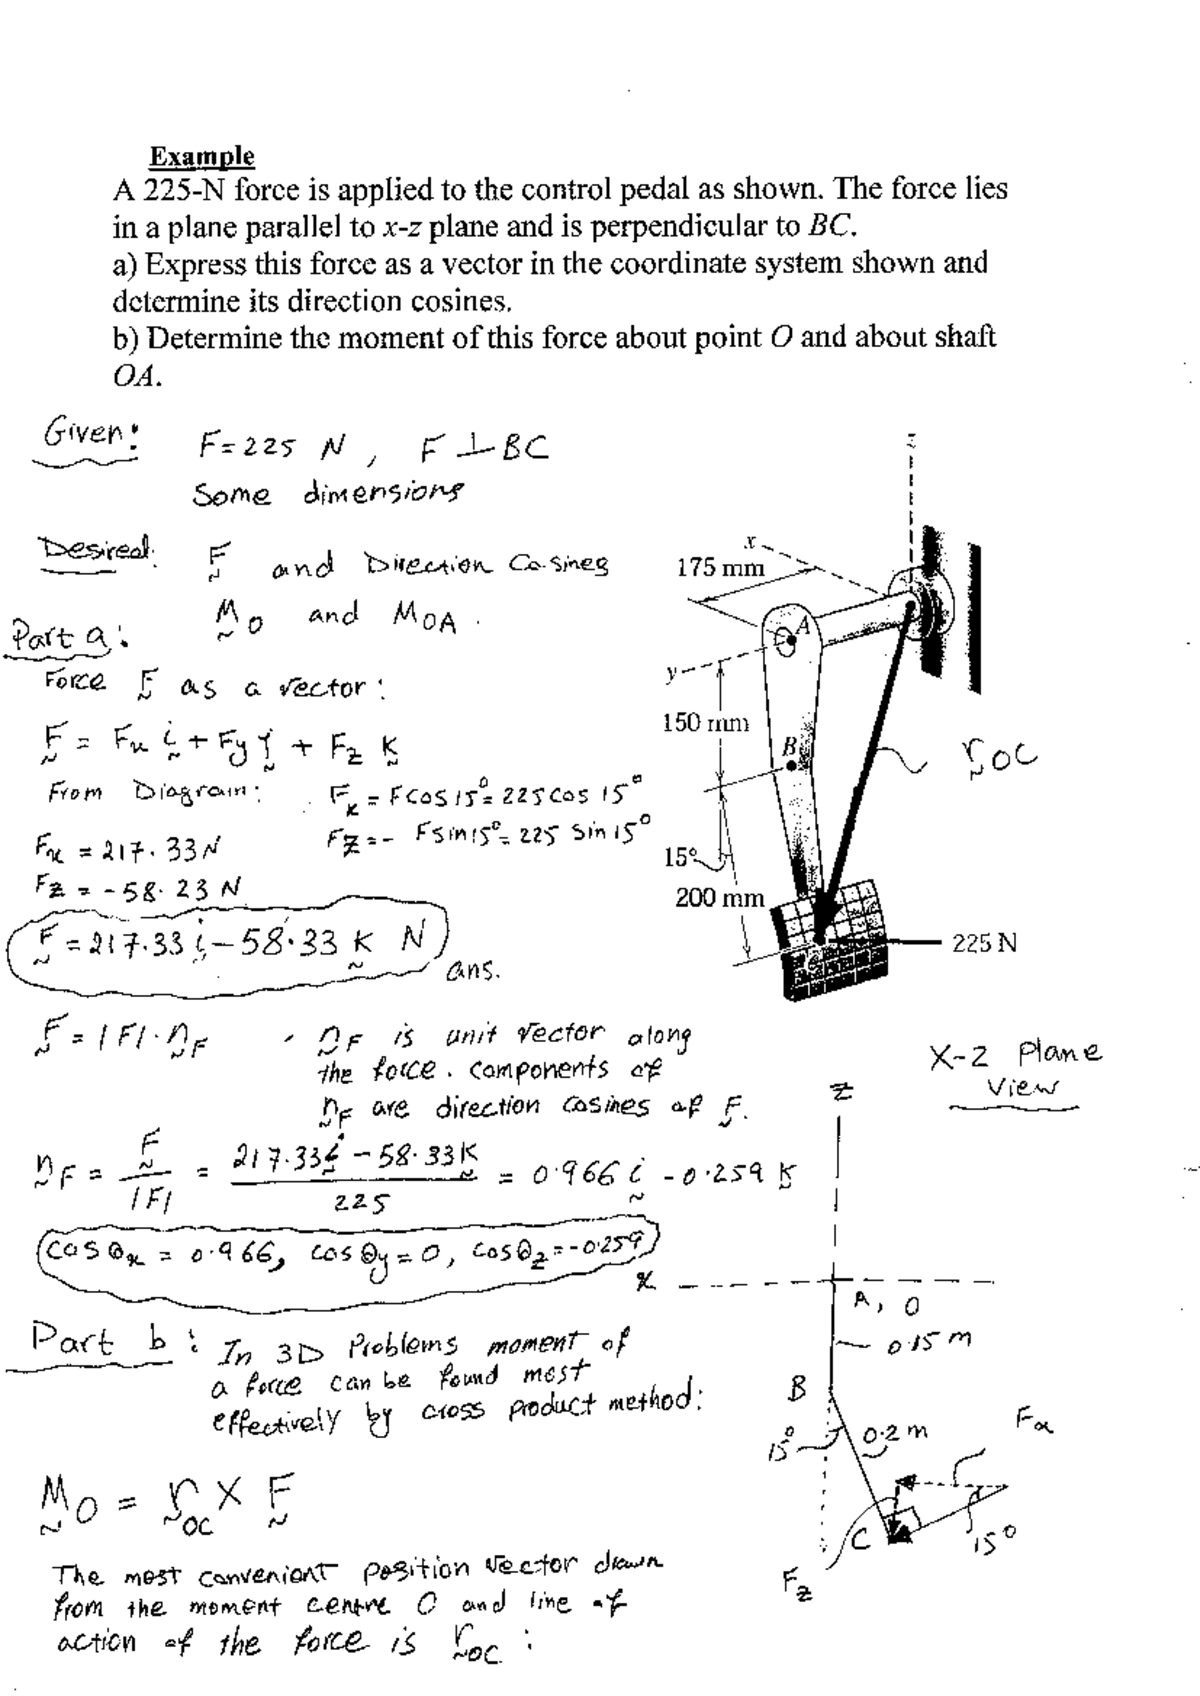 Example
A 225-N force is applied to the control pedal as shown. The force lies
in a plane parallel to x-z plane and is perpendicular to BC.
a) Express this force as a vector in the coordinate system shown and
determine its direction cosines.
b) Determine the moment of this force about point O and about shaft
OA.
Given: F = 225 N , F ⊥ BC
Some dimensions
Desired: F and Direction Cosines
M_O and M_OA .
Part a:
Force F as a vector:
F = Fx i + Fy j + Fz k
From Diagram: Fx = F cos 15° = 225 cos 15°
Fz = - F sin 15° = 225 sin 15°
Fx = 217.33 N
Fz = -58.23 N
F = 217.33 i - 58.33 k N
ans.
z
x
175 mm
A
y
150 mm
B
r_OC
15°
200 mm
C
225 N
F = |F| . n_F
n_F is unit vector along
the force. components of
n_F are direction cosines of F.
n_F = F / |F| = 217.33 i - 58.33 k / 225 = 0.966 i - 0.259 k
cos θx = 0.966, cos θy = 0, cos θz = -0.259
X-Z Plane
View
Z
x
A, O
0.15 m
B
15°
0.2 m
Fx
C
15°
Fz
Part b: In 3D Problems moment of
a force can be found most
effectively by cross product method:
M_O = r_OC X F
The most convenient position vector drawn
from the moment centre O and line of
action of the force is r_OC :